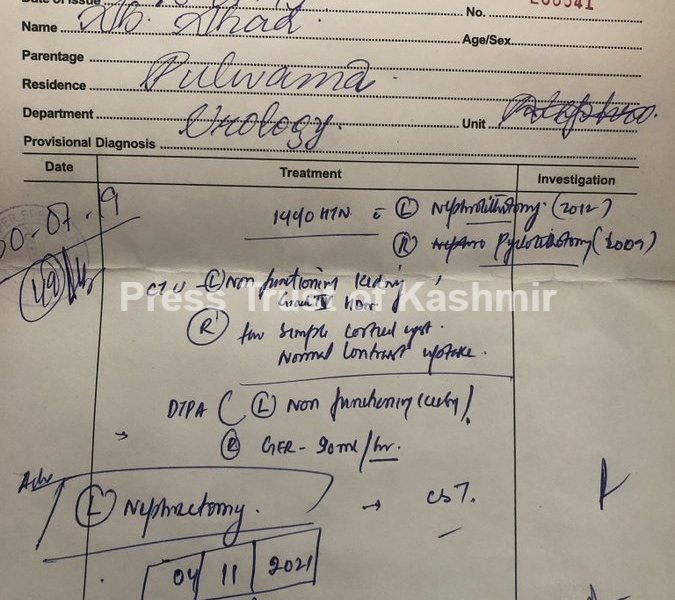 Date of Issue
No. 260541
Name Ab. Ahad.
Age/Sex
Parentage
Residence Pulwama.
Department Urology.
Unit
Provisional Diagnosis
Date Treatment Investigation
30-07-19
HTN c (L) Nephrolithotomy. (2012)
(R) Pyelolithotomy (2009)
CTU (L) Non functioning kidney
Grade IV HDN
Press Trust of Kashmir
(R) few simple cortical cyst.
Normal contrast uptake.
DTPA (L) Non functioning kidney
(R) GFR-90ml/hr.
Adv
(L) Nephrectomy. → CST.
04 11 2021